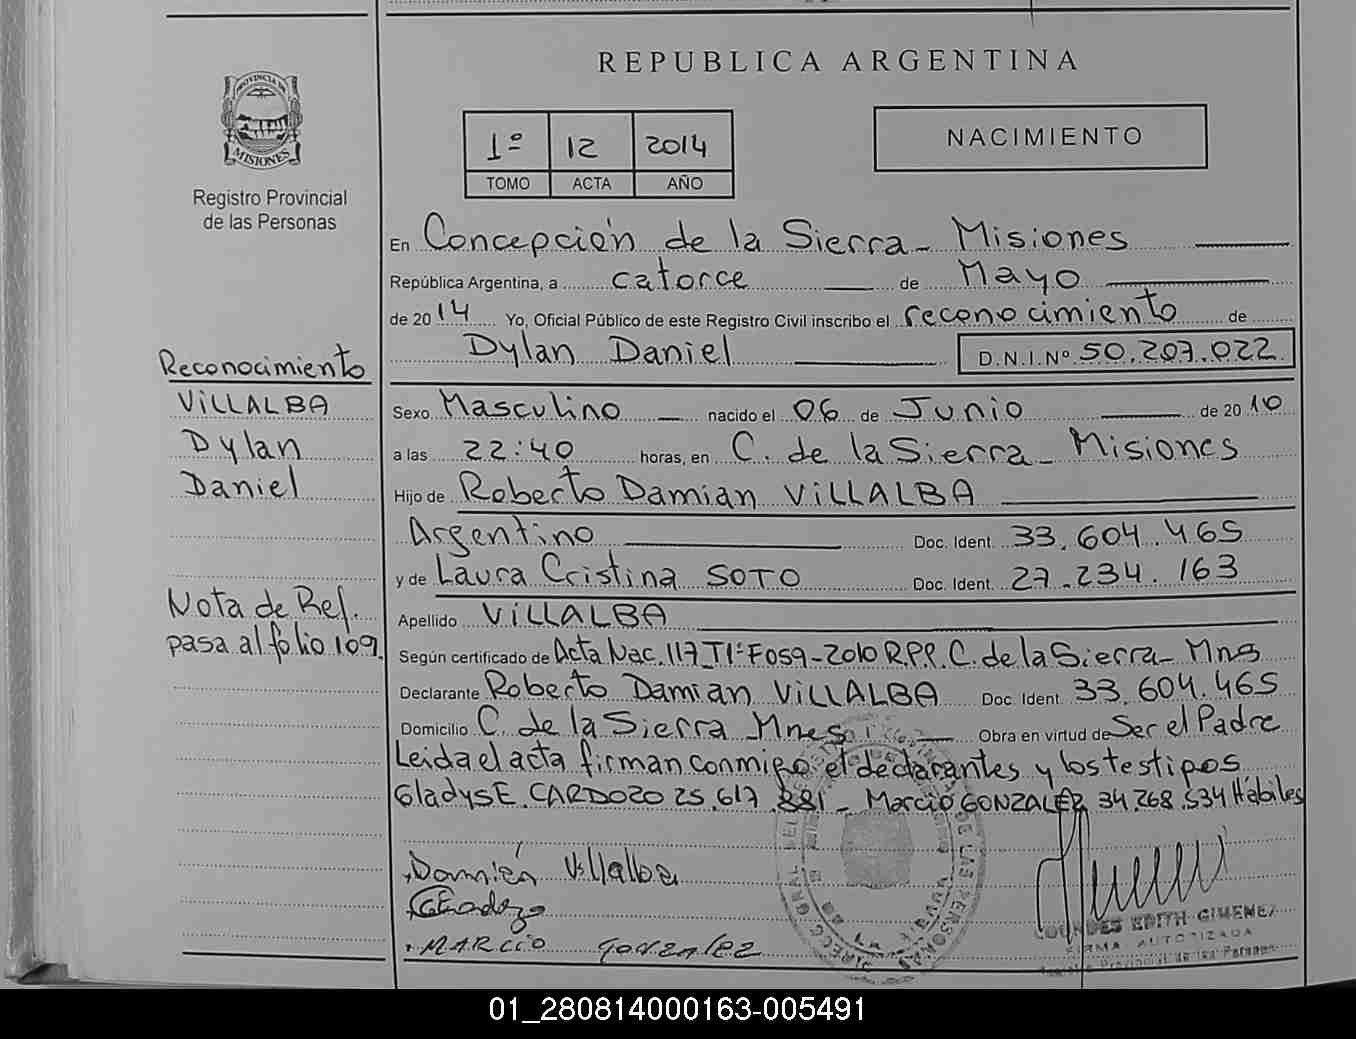 REPUBLICA ARGENTINA
PROVINCIA DE
MISIONES
Registro Provincial
de las Personas
1º 12 2014
TOMO ACTA AÑO
NACIMIENTO
En Concepción de la Sierra - Misiones
República Argentina, a catorce de Mayo
de 2014 Yo, Oficial Público de este Registro Civil inscribo el reconocimiento de
Dylan Daniel D.N.I.Nº 50.207.022
Reconocimiento
VILLALBA
Dylan
Daniel
Sexo Masculino nacido el 06 de Junio de 2010
a las 22:40 horas, en C. de la Sierra - Misiones
Hijo de Roberto Damian VILLALBA
Argentino Doc. Ident. 33.604.465
y de Laura Cristina SOTO Doc. Ident. 27.234.163
Nota de Ref.
pasa al folio 109
Apellido VILLALBA
Según certificado de Acta Nac. 117 T1º F059-2010 R.P.P. C. de la Sierra - Mns
Declarante Roberto Damian VILLALBA Doc. Ident. 33.604.465
Domicilio C. de la Sierra Mnes Obra en virtud de Ser el Padre
Leida el acta firman conmigo el declarantes y los testigos
Gladys E. CARDOZO 25.617.881 - Marcio GONZALEZ 34.268.534 Hábiles
Damián Villalba
MARCIO GONZALEZ
LOURDES EDITH GIMENEZ
FIRMA AUTORIZADA
Registro Provincial de las Personas
01_280814000163-005491